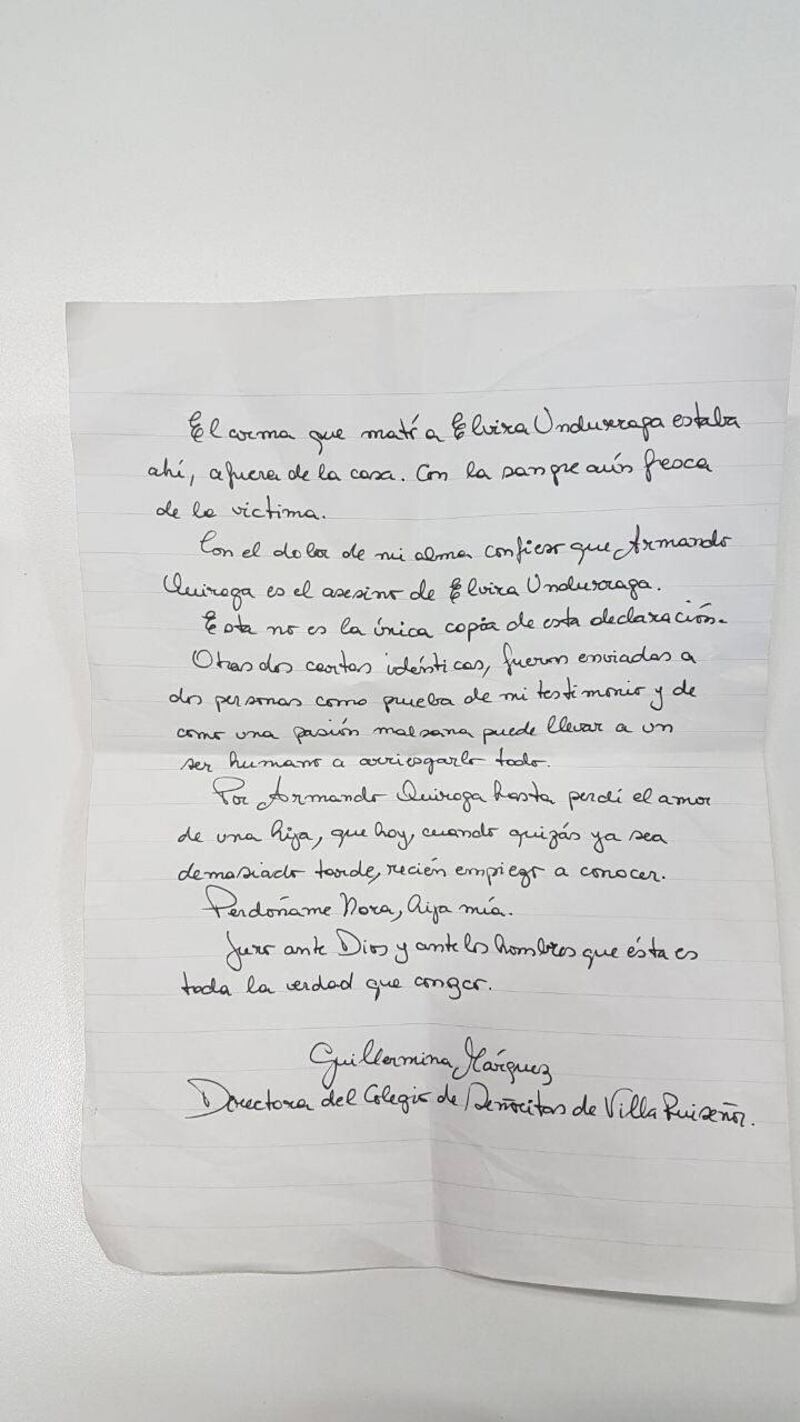 El arma que mató a Elvira Undurraga estaba
ahí, afuera de la casa. Con la sangre aún fresca
de la víctima.
Con el dolor de mi alma confieso que Armando
Quiroga es el asesino de Elvira Undurraga.
Esta no es la única copia de esta declaración.
Otras dos cartas idénticas, fueron enviadas a
dos personas como prueba de mi testimonio y de
como una pasión malsana puede llevar a un
ser humano a arriesgarlo todo.
Por Armando Quiroga hasta perdí el amor
de una hija, que hoy, cuando quizás ya sea
demasiado tarde, recién empiezo a conocer.
Perdóname Nora, hija mía.
Juro ante Dios y ante los hombres que ésta es
toda la verdad que conozco.
Guillermina Márquez
Directora del Colegio de Señoritas de Villa Ruiseñor.